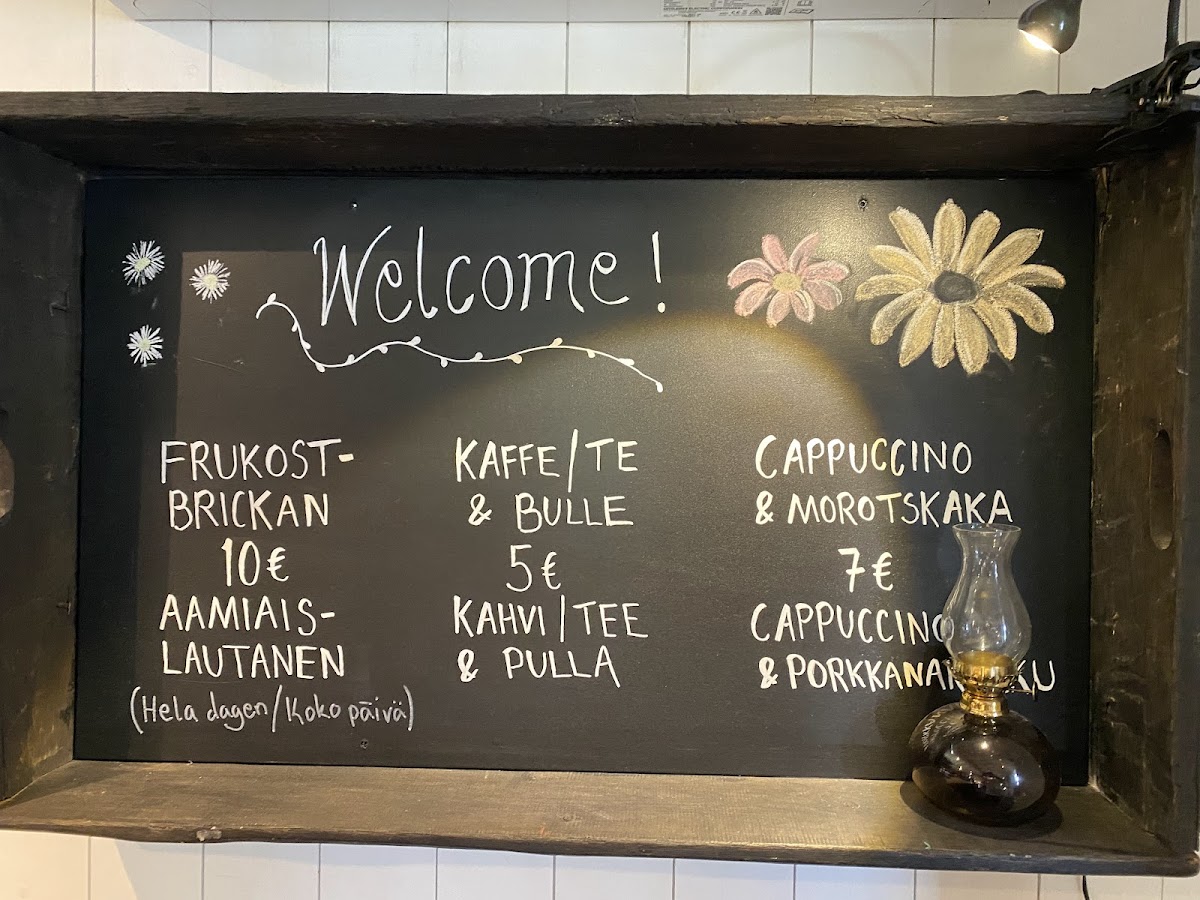 Welcome!
FRUKOST-
BRICKAN
10€
AAMIAIS-
LAUTANEN
(Hela dagen/Koko päivä)
KAFFE/TE
& BULLE
5€
KAHVI/TEE
& PULLA
CAPPUCCINO
& MOROTSKAKA
7€
CAPPUCCINO
&